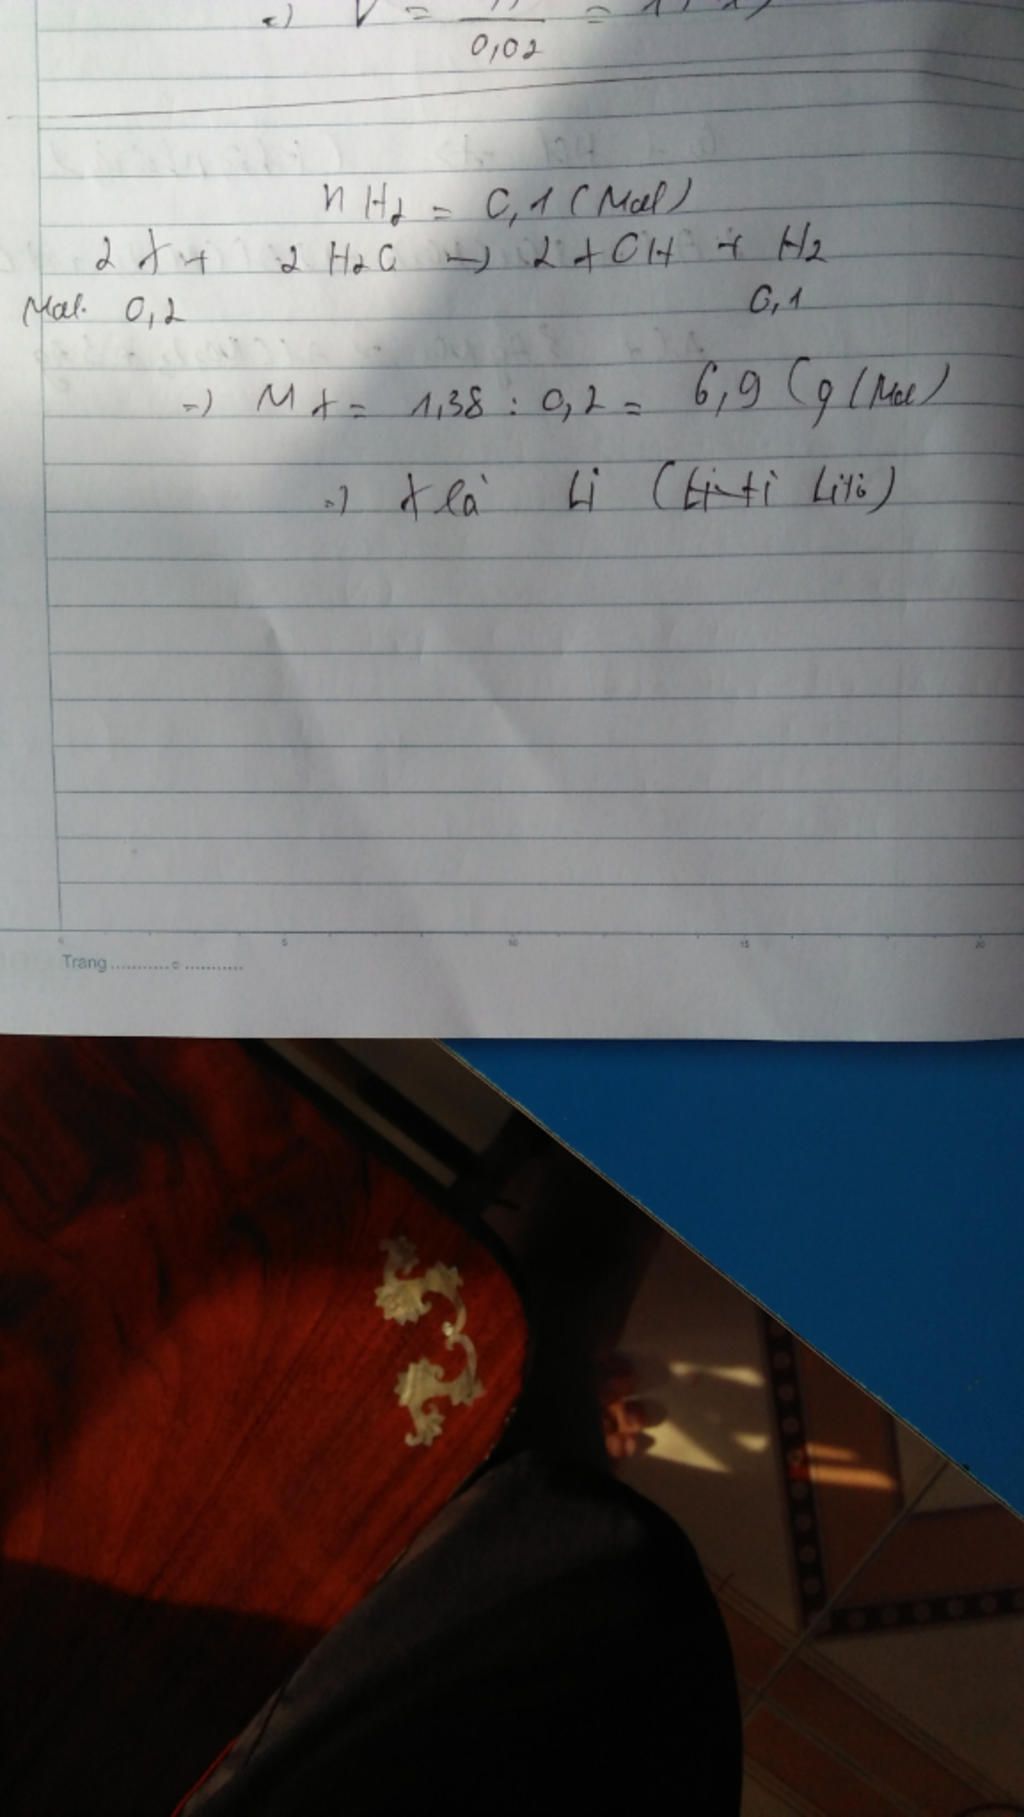 => V = 0,02 =
nH2 = 0,1 (Mol)
2X + 2H2O -> 2XOH + H2
Mol. 0,2 0,1
=> MX = 1,38 : 0,2 = 6,9 (g/Mol)
=> X là Li (Li-ti Liti)
0 5 10 15 20
Trang